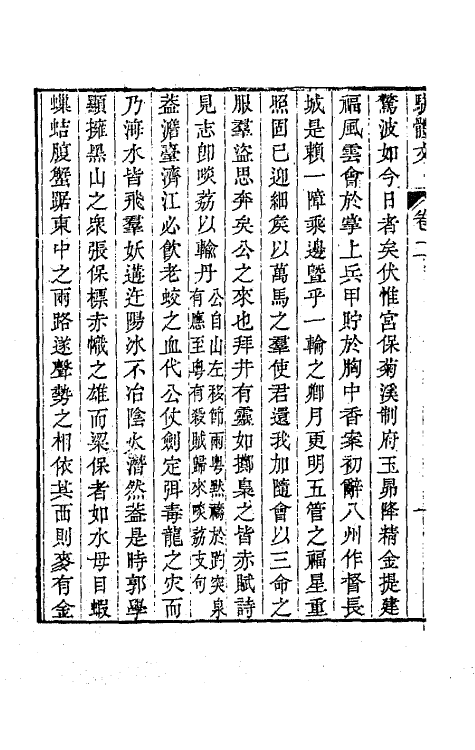 駢體文 卷二
驚波如今日者矣伏惟宮保菊溪制府玉昴降精金提建
福風雲會於掌上兵甲貯於胸中香案初辭八州作督長
城是賴一障乘邊暨乎一輪之鄉月更明五管之福星重
照固已迎細矦以萬馬之羣使君還我加隨會以三命之
服羣盜思奔矣公之來也拜井有靈如擲梟之皆赤賦詩
見志卽啖荔以輸丹
公自山左移節兩粵默禱於趵突泉
有應至粵有殺賊歸來啖荔支句
蓋澹臺濟江必飮老蛟之血代公仗劍定弭毒龍之灾而
乃海水皆飛羣妖遘迕陽冰不冶陰火潛然蓋是時郭學
顯擁黑山之衆張保標赤幟之雄而梁保者如水母目蝦
蟂蛣腹蟹踞東中之兩路遂聲勢之相依其西則麥有金